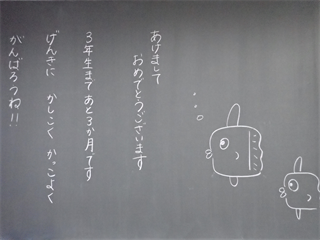 あけまして
おめでとうございます
3年生まであと3か月です
げんきに かしこく かっこよく
がんばろうね!!